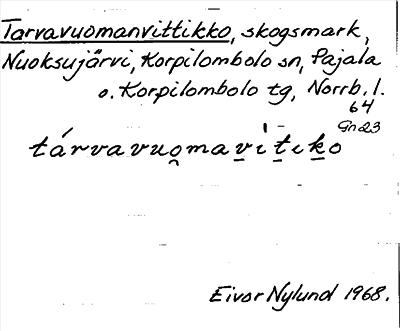 Tarvavuomanvittikko, skogsmark,
Nuoksujärvi, Korpilombolo sn, Pajala
o. Korpilombolo tg, Norrb. l.
64
Gn23
tárvavuo̯mav̲i̍t̲ık̲o
Eivor Nylund 1968.